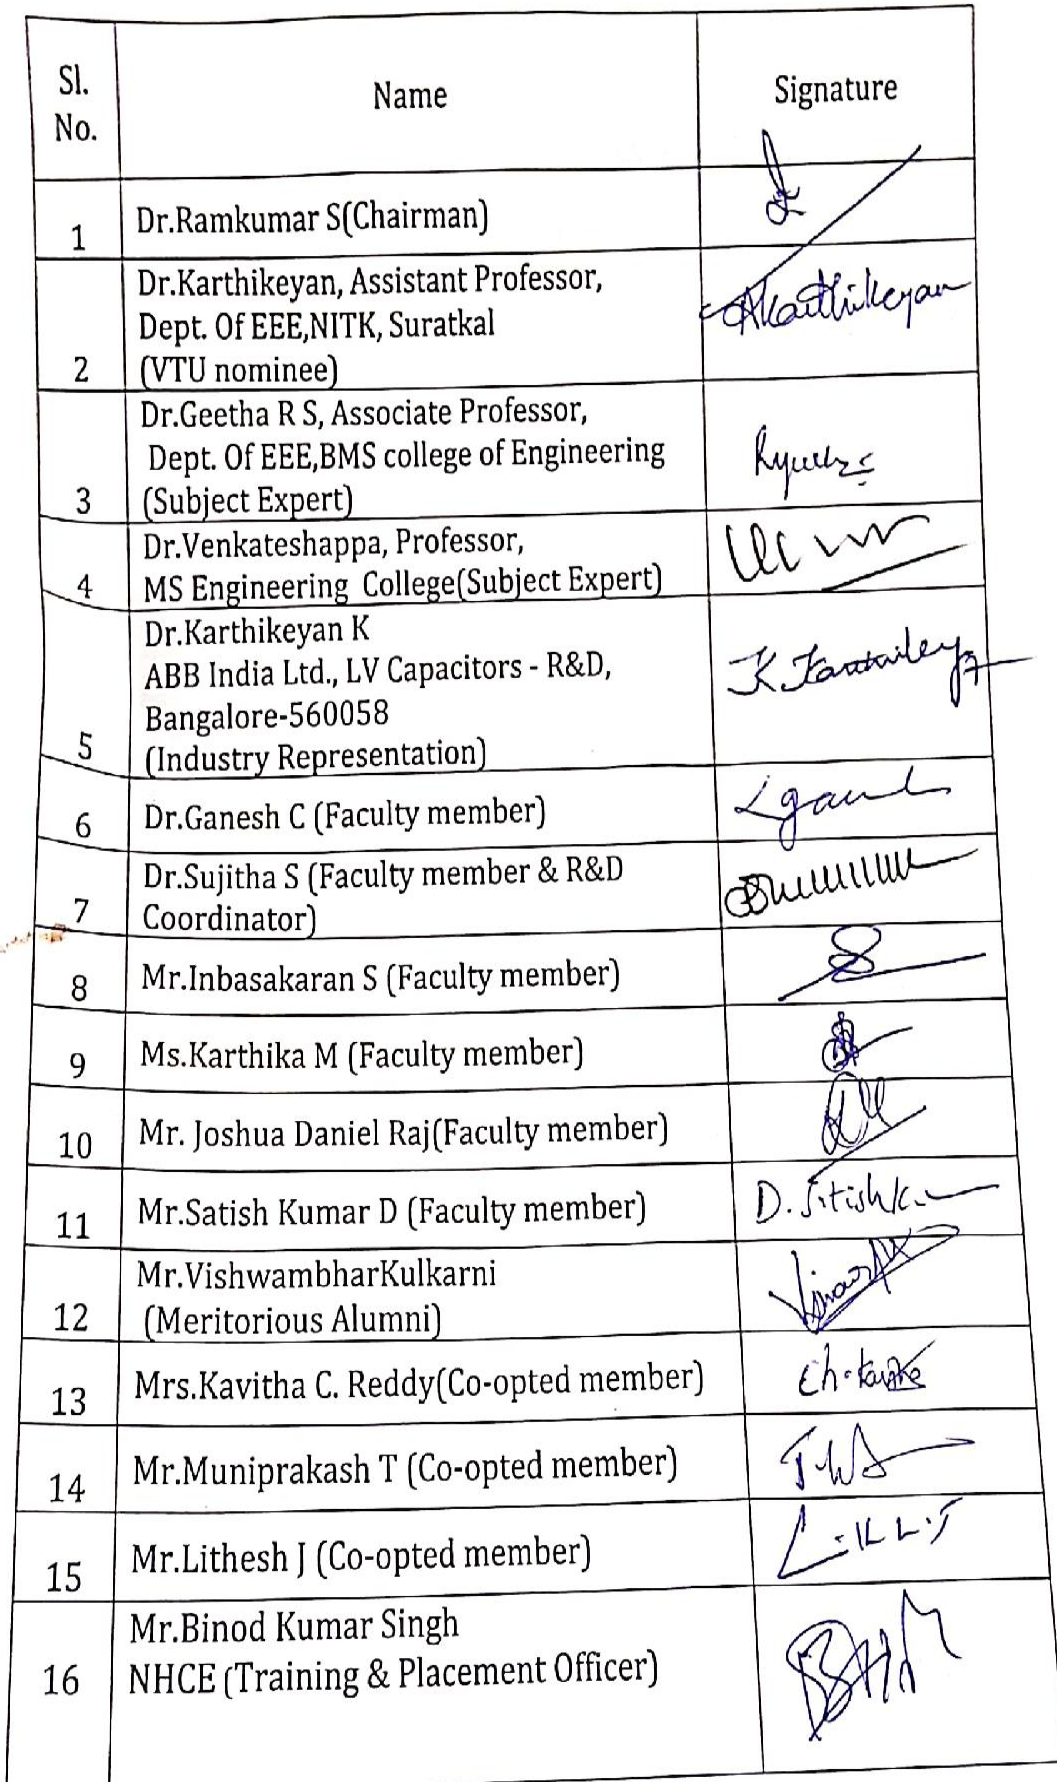 Sl. No. Name Signature
1 Dr.Ramkumar S(Chairman)
Dr.Karthikeyan, Assistant Professor,
Dept. Of EEE,NITK, Suratkal
2 (VTU nominee)
AKarthikeyan
Dr.Geetha R S, Associate Professor,
Dept. Of EEE,BMS college of Engineering
3 (Subject Expert)
Dr.Venkateshappa, Professor,
4 MS Engineering College(Subject Expert)
Dr.Karthikeyan K
ABB India Ltd., LV Capacitors - R&D,
Bangalore-560058
5 (Industry Representation)
6 Dr.Ganesh C (Faculty member)
Dr.Sujitha S (Faculty member & R&D
7 Coordinator)
8 Mr.Inbasakaran S (Faculty member)
9 Ms.Karthika M (Faculty member)
10 Mr. Joshua Daniel Raj(Faculty member)
11 Mr.Satish Kumar D (Faculty member)
Mr.VishwambharKulkarni
12 (Meritorious Alumni)
13 Mrs.Kavitha C. Reddy(Co-opted member)
14 Mr.Muniprakash T (Co-opted member)
15 Mr.Lithesh J (Co-opted member)
Mr.Binod Kumar Singh
16 NHCE (Training & Placement Officer)